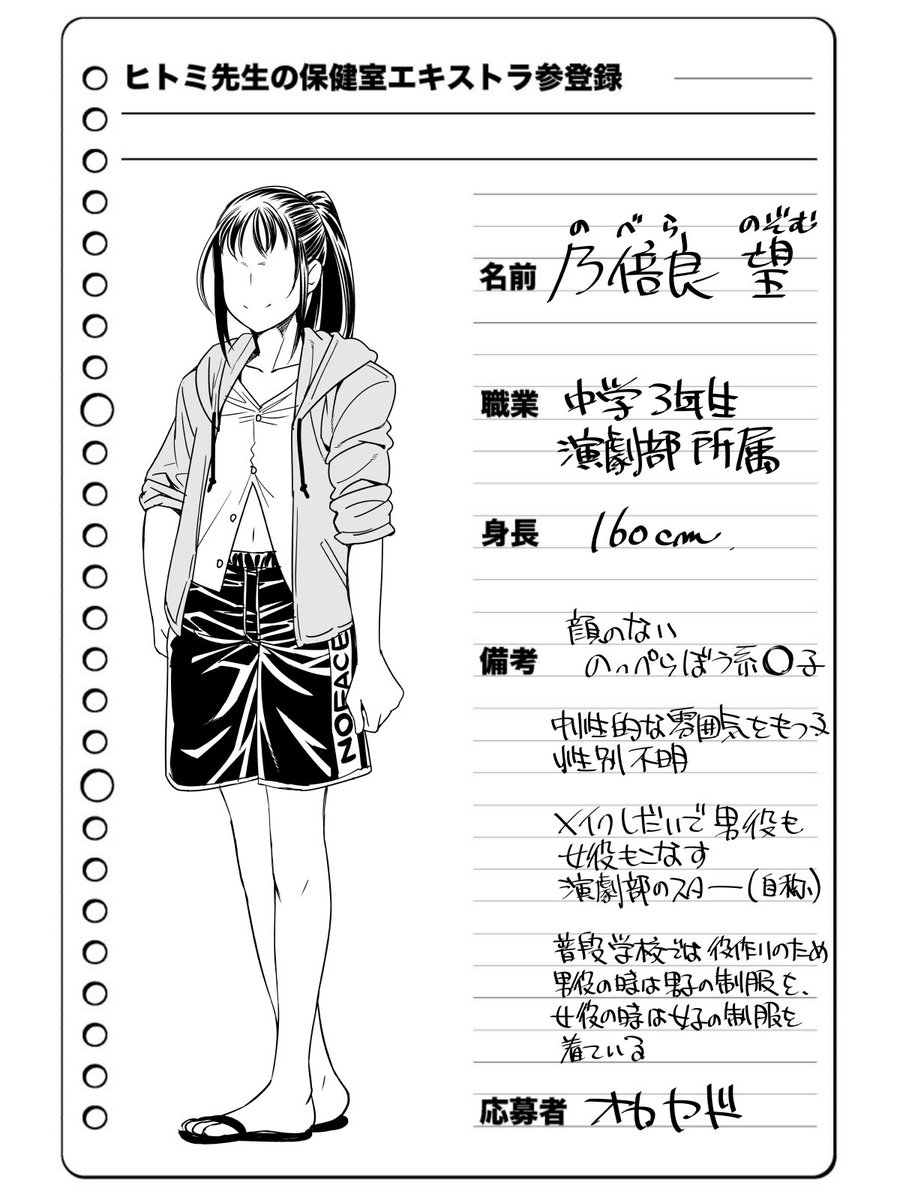 ヒトミ先生の保健室エキストラ参登録
のべら のぞむ
名前 乃倍良 望
職業 中学3年生
演劇部所属
身長 160cm
備考 顔のない
のっぺらぼう系〇子
中性的な雰囲気をもつ
性別不明
メイクしだいで男役も
女役もこなす
演劇部のスター(自称)
普段学校では役作りのため
男役の時は男子の制服を、
女役の時は女子の制服を
着ている
応募者 オカヤド
NOFACE